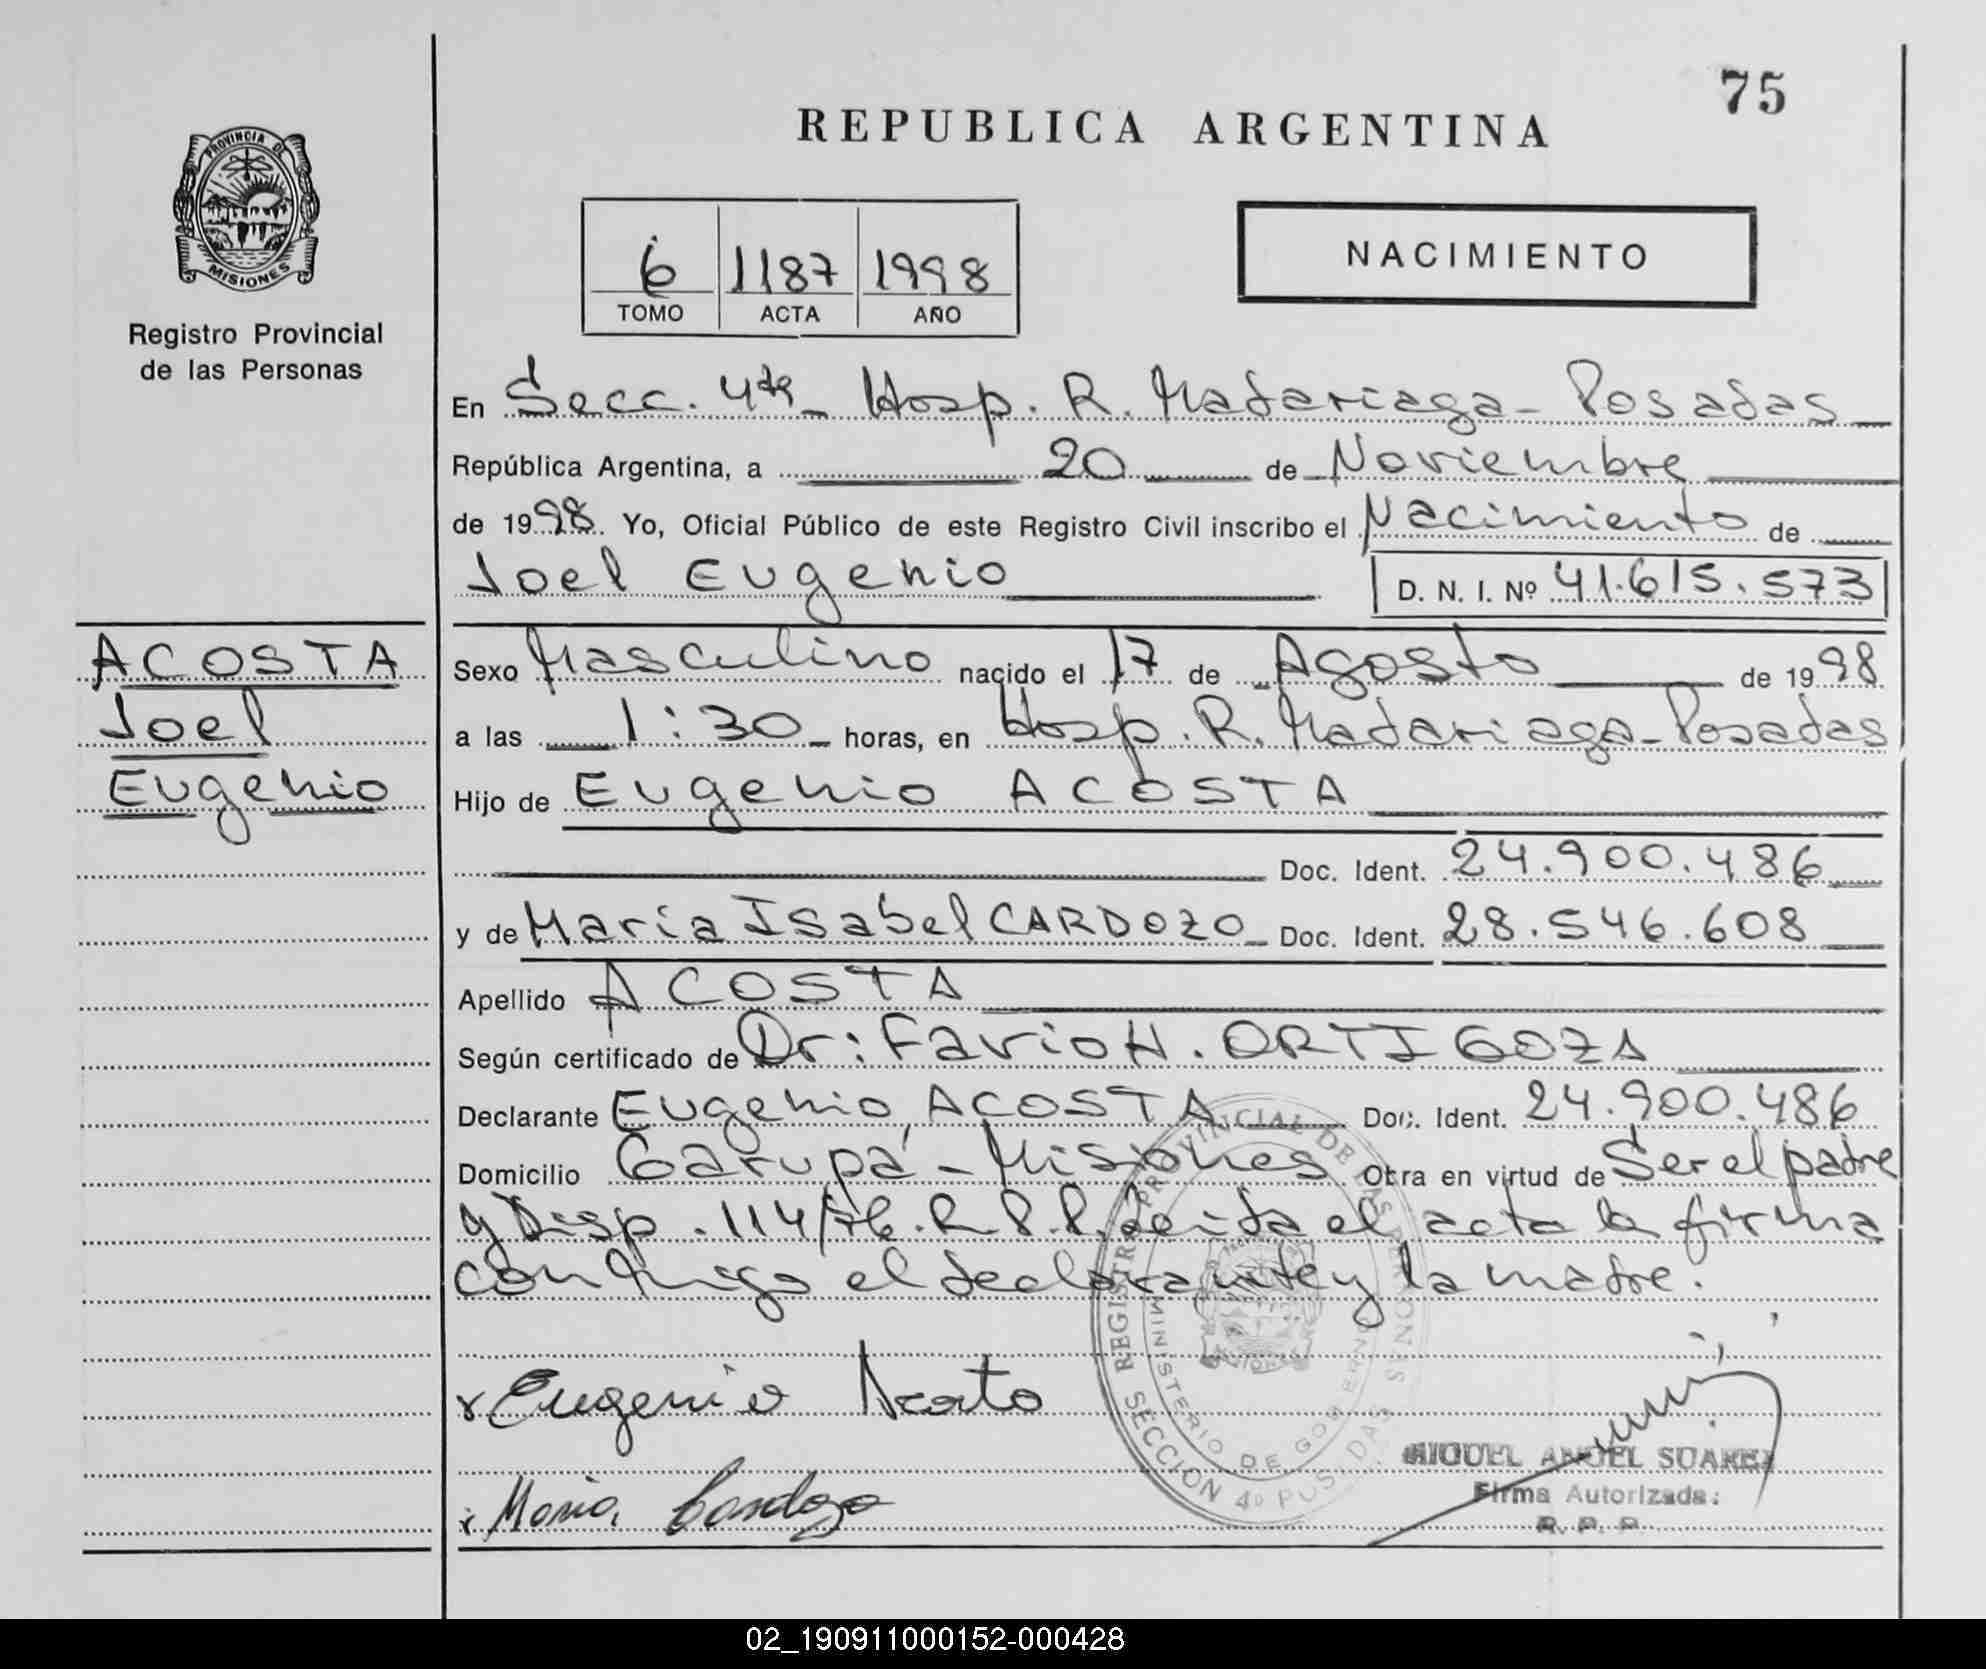 75
REPUBLICA ARGENTINA
PROVINCIA DE
MISIONES
Registro Provincial
de las Personas
6 1187 1998
TOMO ACTA AÑO
NACIMIENTO
En Secc. 4ta Hosp. R. Madariaga - Posadas
República Argentina, a 20 de Noviembre
de 1998. Yo, Oficial Público de este Registro Civil inscribo el Nacimiento de
Joel Eugenio D. N. I. Nº 41.615.573
ACOSTA
Joel
Eugenio
Sexo Masculino nacido el 17 de Agosto de 1998
a las 1:30 horas, en Hosp. R. Madariaga - Posadas
Hijo de Eugenio ACOSTA
Doc. Ident. 24.900.486
y de Maria Isabel CARDOZO Doc. Ident. 28.546.608
Apellido ACOSTA
Según certificado de Dr: Favio H. ORTIGOZA
Declarante Eugenio ACOSTA Doc. Ident. 24.900.486
Domicilio Garupá - Misiones Obra en virtud de Ser el padre
y Disp. 114/76. R.P.P. Leida el acta la firma
conmigo el declarante y la madre.
REGISTRO PROVINCIAL DE LAS PERSONAS
MINISTERIO DE GOBIERNO
SECCION 4º POSADAS
x Eugenio Acosta
x Maria Cardozo
MIGUEL ANGEL SUAREZ
Firma Autorizada:
R. P. P.
02_190911000152-000428